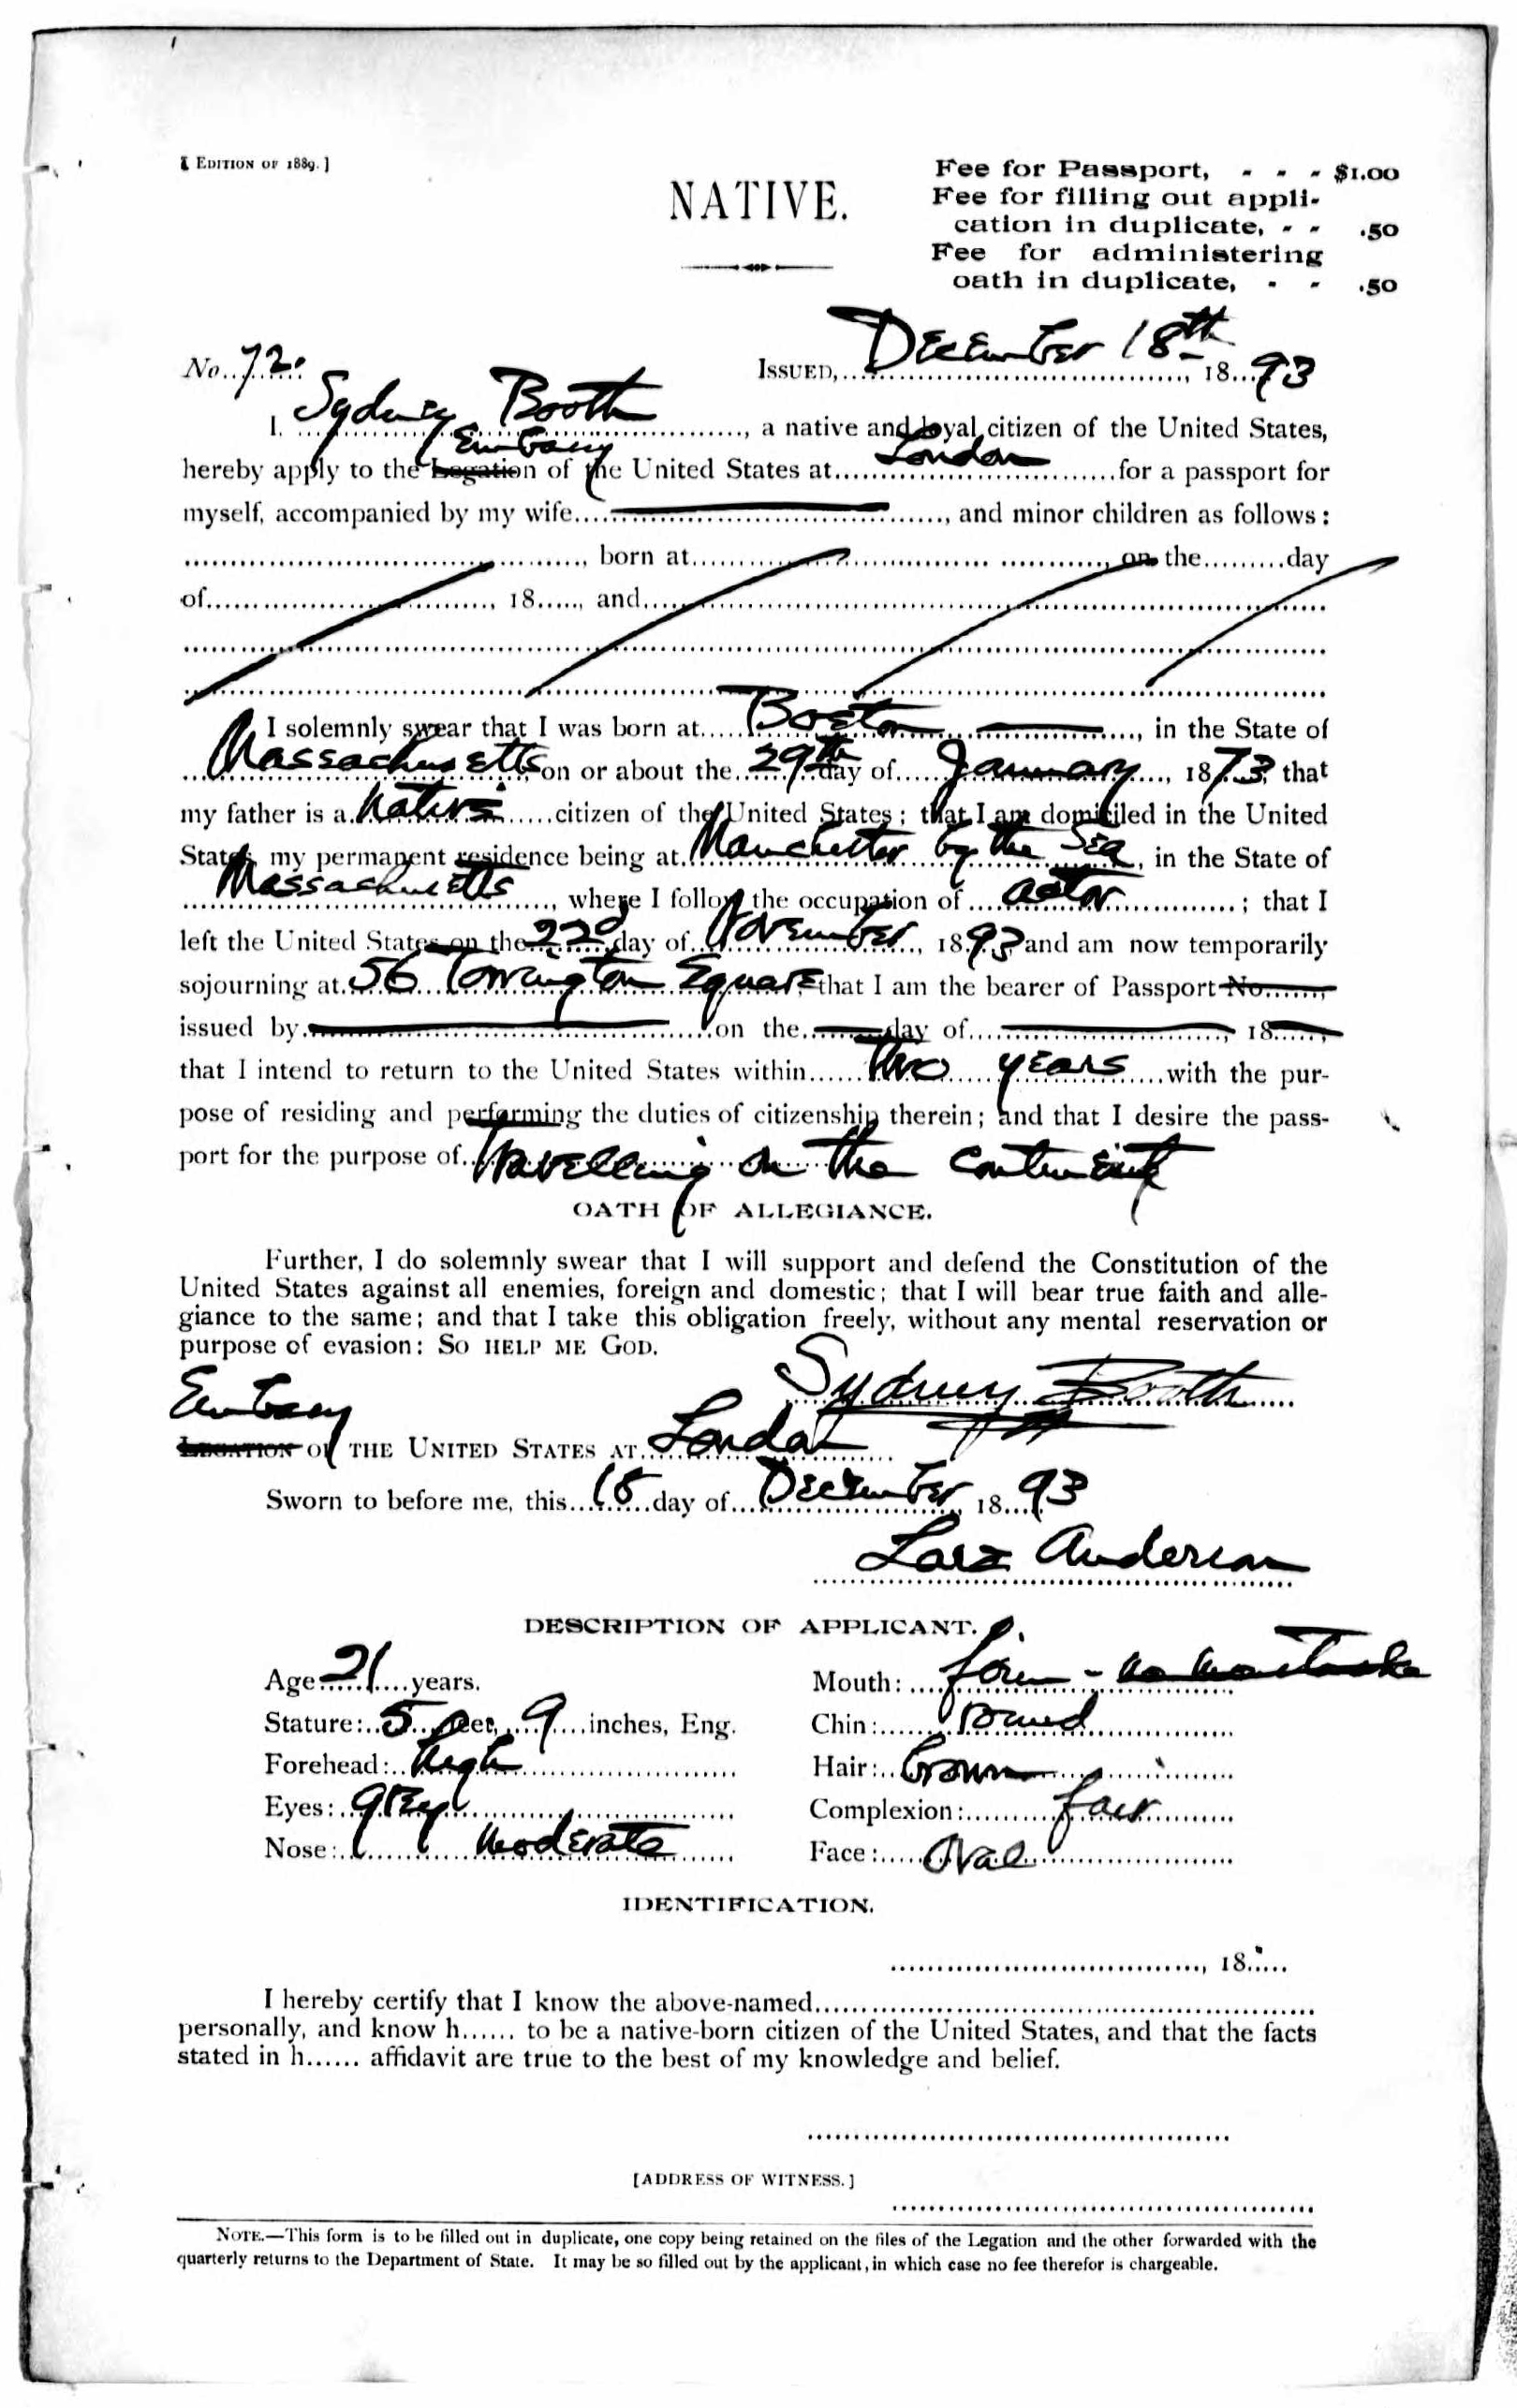 [ EDITION OF 1889. ]
NATIVE.
Fee for Passport, - - - $1.00
Fee for filling out appli-
cation in duplicate, - - .50
Fee for administering
oath in duplicate, - - .50
No. 72. ISSUED, December 18th 1893
I, Sydney Booth, a native and loyal citizen of the United States,
Embassy
hereby apply to the Legation of the United States at London for a passport for
myself, accompanied by my wife, and minor children as follows:
born at, on the day
of, 18, and
I solemnly swear that I was born at Boston, in the State of
Massachusetts on or about the 29th day of January, 1873, that
my father is a native citizen of the United States; that I am domiciled in the United
States, my permanent residence being at Manchester by the Sea, in the State of
Massachusetts, where I follow the occupation of actor; that I
left the United States on the 22d day of November, 1893 and am now temporarily
sojourning at 56 Torrington Square that I am the bearer of Passport No.,
issued by on the day of, 18,
that I intend to return to the United States within two years with the pur-
pose of residing and performing the duties of citizenship therein; and that I desire the pass-
port for the purpose of travelling on the continent
OATH OF ALLEGIANCE.
Further, I do solemnly swear that I will support and defend the Constitution of the
United States against all enemies, foreign and domestic; that I will bear true faith and alle-
giance to the same; and that I take this obligation freely, without any mental reservation or
purpose of evasion: SO HELP ME GOD.
Sydney Booth
Embassy
LEGATION OF THE UNITED STATES AT London
Sworn to before me, this 18 day of December, 1893
Larz Anderson
DESCRIPTION OF APPLICANT.
Age: 21 years. Mouth: firm - no moustache
Stature: 5 feet, 9 inches, Eng. Chin: round
Forehead: high Hair: brown
Eyes: grey Complexion: fair
Nose: moderate Face: Oval
IDENTIFICATION.
, 18
I hereby certify that I know the above-named
personally, and know h to be a native-born citizen of the United States, and that the facts
stated in h affidavit are true to the best of my knowledge and belief.
[ADDRESS OF WITNESS.]
NOTE.—This form is to be filled out in duplicate, one copy being retained on the files of the Legation and the other forwarded with the
quarterly returns to the Department of State. It may be so filled out by the applicant, in which case no fee therefor is chargeable.